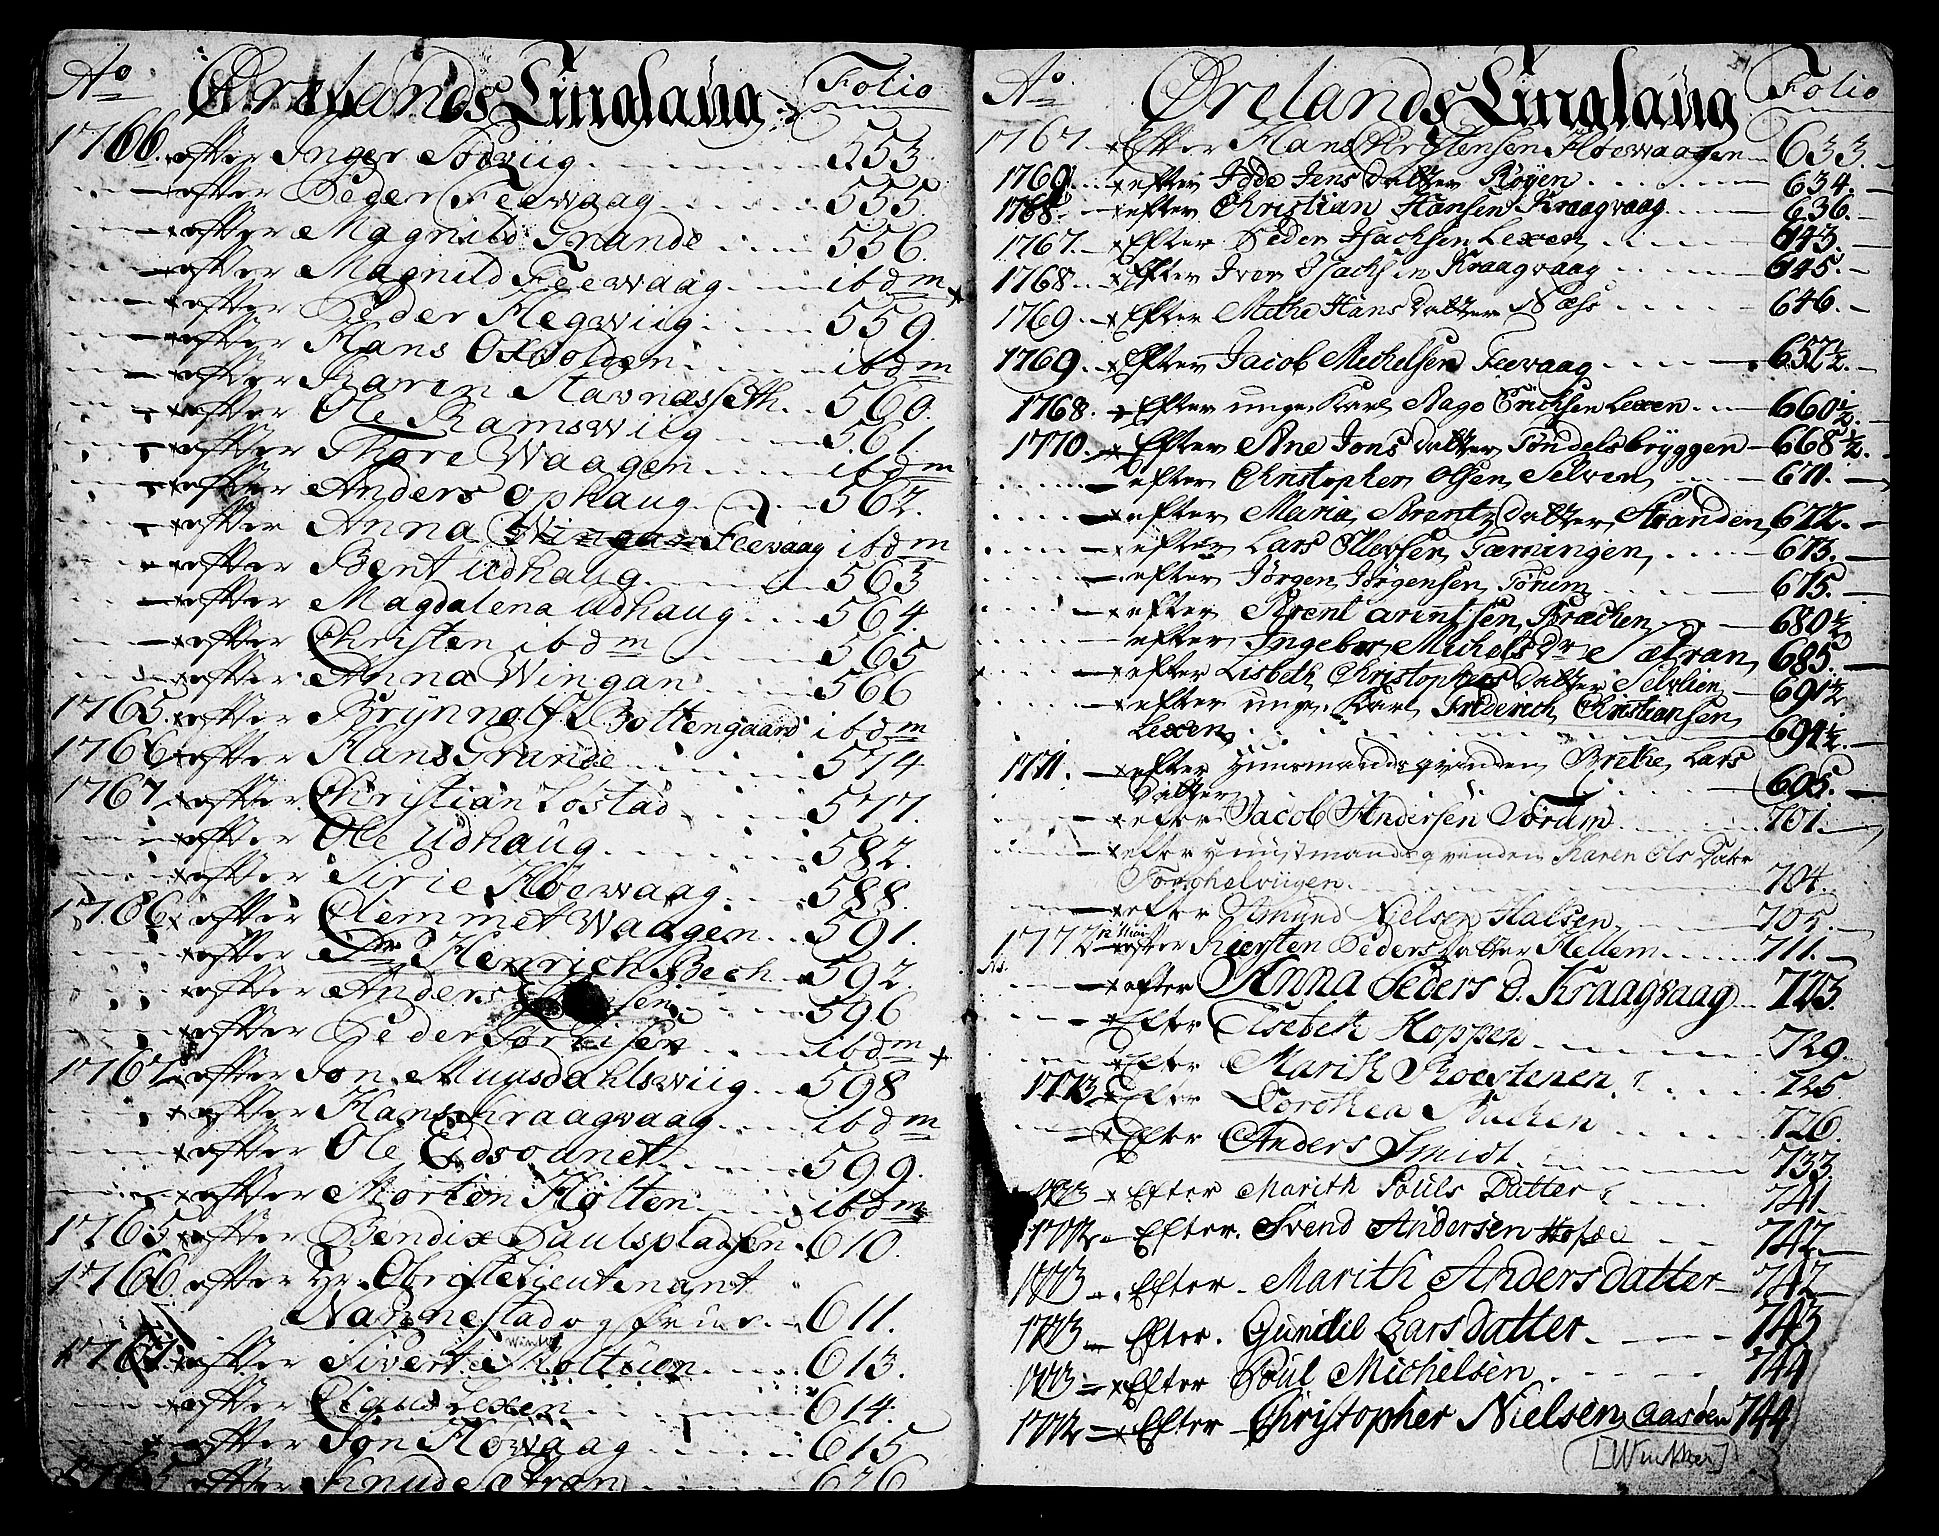 Ao Ørelands Tinglaug Folio
1766. efter Inger Sørviig 553.
efter Peder Feevaag 555.
efter Magnild Grande 556.
efter Magnild Feevaag ibdm
efter Peder Hegwiig 559.
efter Hans Oxvolden ibdm
efter Karen Stavnæsseth 560.
efter Ole Ramswiig 561.
efter Thore Waagen ibdm
efter Anders Ophaug 562.
efter Anna Feevaag ibdm
efter Bent Udhaug 563
efter Magdalena Udhaug 564.
efter Christen ibdm 565
efter Anna Wingan 566
1765. efter Brynnolf Bottengaard ibdm
1766 efter Hans Grande 574
1767. efter Christian Lostad 577.
efter Ole Udhaug 582.
efter Sirie Høewaag 588.
1766 efter Clemmet Waagen 591.
efter Hr Henrich Bech 592.
efter Anders 596
efter Peder ibdm
1767 efter Jon Muusdahlswiig 598
efter Hans Kraagvaag ibdm
efter Ole Eidsounet 599.
efter Morten Holten ibdm
1765 efter Bendix Paulspladsen 610.
1766 efter Hr. Obristelieutenant
Nannestad og frue 611.
1767. efter Sivert Moltuen 613.
efter Claus Lexen 614.
efter Jon Howaag 615
1765 efter Knud Sætran 626
Ao Ørelands Tinglaug Folio
1767. Efter Hans Christensen Høewaagen 633.
1769. efter Jens Datter Røyen 634.
1768. efter Christian Hansen Kraagvaag 636.
1767. Efter Peder Isachsen Lexen 643.
1768. Efter Iver Isachsen Kraagvaag 645.
1769. Efter Mette Hans Datter Næss 646.
1769. Efter Jacob Michelsen Feevaag 657½.
1768. Efter unge Karl Aage Erichsen Lexen 660½.
1770. Efter Ane Jons Datter Tøndelsbryggen 668½.
efter Christopher Olsen Selven 671.
efter Maria Arentz Datter Stranden 672.
efter Lars Ellevsen Tærningen 673.
efter Jørgen Jørgensen Tørum 675.
efter Arent Arintsen Bræchen 680½
efter Ingeber Michels Dr Sætran 685.
efter Lisbeth Christophers Datter Selvlien 691½
efter unge Karl Friderich Christiansen
Lexen 694½.
1771. efter Huusmands qvinden Brethe Lars
Datter 605.
efter Jacob Andersen Tørum 701.
efter Huusmands qvinden Karen Ols Datr
Torghelviigen 704.
efter Amund Nielsen Halsen 705.
1772 12 Maii efter Kiersten Peders Datter Hellem 711.
efter Anna Peders D. Kraagvaag 723.
Efter Lisbeth Hoppen 729.
Efter Marith Roestenen 725.
1773 Efter Dorothea 726.
Efter Anders Smidt 733
1773 Efter Marith Pouls Datter 741.
1772 Efter. Svend Andersen 742.
1773 Efter. Marith Andersdatter 742
1773 Efter. Gundil Larsdatter 743
1773 Efter Poul Michelsen 744
1772 Efter Christopher Nielsen Aasden 744